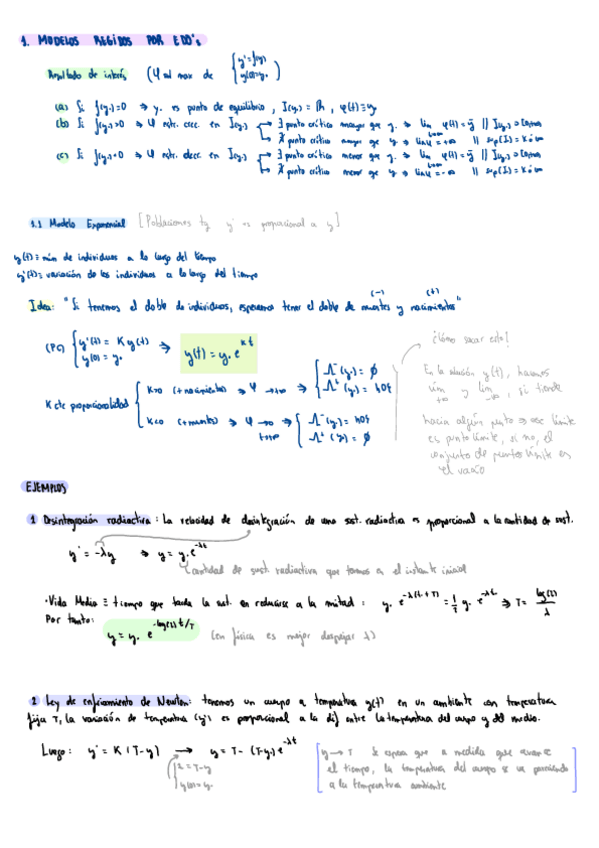 1. MODELOS REGIDOS POR EDO's
Resultado de interés (φ sol max de { y'=f(y) y(0)=y₀ )
(a) Si f(y₀)=0 ⇒ y₀ es punto de equilibrio, I(y₀) = ℝ, φ(t)≡y₀
(b) Si f(y₀)>0 ⇒ φ estr. crec. en I(y₀) → ∃ punto crítico mayor que y₀ ⇒ lim φ(t)=ȳ ||
→ ∄ punto crítico mayor que y₀ ⇒ lim φ = +∞ ||
(c) Si f(y₀)<0 ⇒ φ estr. decr. en I(y₀) → ∃ punto crítico menor que y₀ ⇒ lim φ(t)=ȳ ||
→ ∄ punto crítico menor que y₀ ⇒ lim φ = -∞ ||
1.1 Modelo Exponencial [Poblaciones tq y' es proporcional a y]
y(t) ≡ núm de individuos a lo largo del tiempo
y'(t) ≡ variación de los individuos a lo largo del tiempo
(-) (+)
Idea: "Si tenemos el doble de individuos, esperamos tener el doble de muertes y nacimientos"
(PC) { y'(t) = K y(t) y(0) = y₀ ⇒ y(t) = y₀ e^{Kt}
K cte proporcionalidad
K>0 (+nacimientos) ⇒ φ → +∞ ⇒ { Λ⁺(y₀) = ∅ Λ⁻(y₀) = {0}
K<0 (+muertes) ⇒ φ → 0 t→+∞ ⇒ { Λ⁻(y₀) = {0} Λ⁺(y₀) = ∅
¿Cómo sacar esto?
En la solución y(t), hacemos
lim +∞ y lim -∞, si tiende
hacia algún punto ⇒ ese límite
es punto límite, si no, el
conjunto de puntos límite es
el vacío
EJEMPLOS
1 Desintegración radiactiva: La velocidad de desintegración de una sust. radiactiva es proporcional a la cantidad de sust.
y' = -λy ⇒ y = y₀ e^{-λt}
cantidad de sust. radiactiva que tenemos en el instante inicial
· Vida Media ≡ tiempo que tarda la sust. en reducirse a la mitad: y₀ e^{-λ(t+T)} = ½ y₀ e^{-λt} ⇒ T = log(2)/λ
Por tanto:
y = y₀ e^{-log(2) t/T} (en física es mejor despejar λ)
2 Ley de enfriamiento de Newton: tenemos un cuerpo a temperatura y(t) en un ambiente con temperatura
fija T, la variación de temperatura (y') es proporcional a la dif entre la temperatura del cuerpo y del medio.
Luego: y' = K (T-y) → y = T - (T-y₀) e^{-λt}
z = T-y
y(0)=y₀
[ y → T Se espera que a medida que avance
el tiempo, la temperatura del cuerpo se va pareciendo
a la temperatura ambiente ]